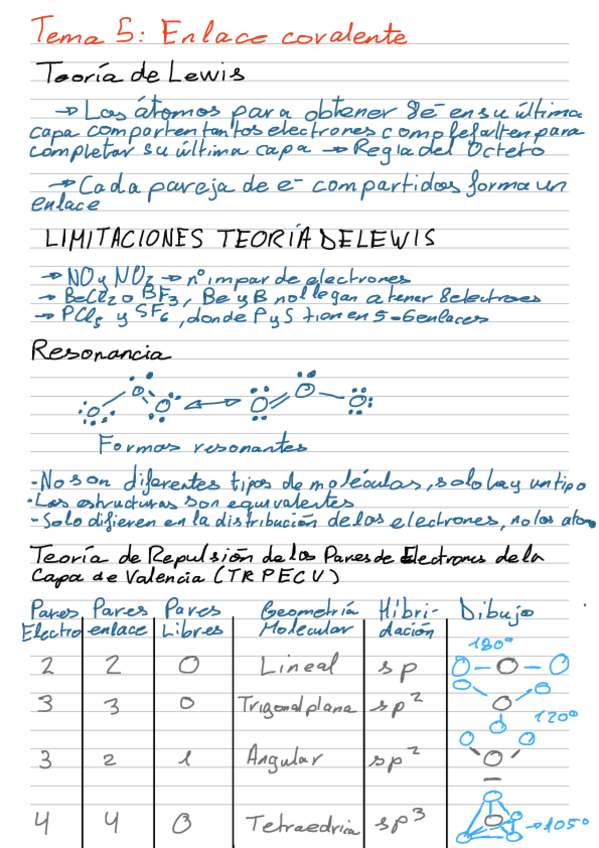 Tema 5: Enlace covalente
Teoría de Lewis
→ Los átomos para obtener 8e⁻ en su última
capa comparten tantos electrones como le falten para
completar su última capa → Regla del Octeto
→ Cada pareja de e⁻ compartidos forma un
enlace
LIMITACIONES TEORÍA DE LEWIS
→ NO y NO₂ → nº impar de electrones
→ BeCl₂ o BF₃, Be y B no llegan a tener 8 electrones
→ PCl₅ y SF₆, donde P y S tienen 5-6 enlaces
Resonancia
Formas resonantes
- No son diferentes tipos de moléculas, solo hay un tipo
- Las estructuras son equivalentes
- Solo difieren en la distribución de los electrones, no los atom
Teoría de Repulsión de los Pares de Electrones de la
Capa de Valencia (TRPECV)
Pares Pares Pares Geometría Hibri- Dibujo
Electro enlace Libres Molecular dación
180°
2 2 0 Lineal sp O-O-O
3 3 0 Trigonal plana sp²
120°
3 2 1 Angular sp²
4 4 0 Tetraedria sp³ →105°